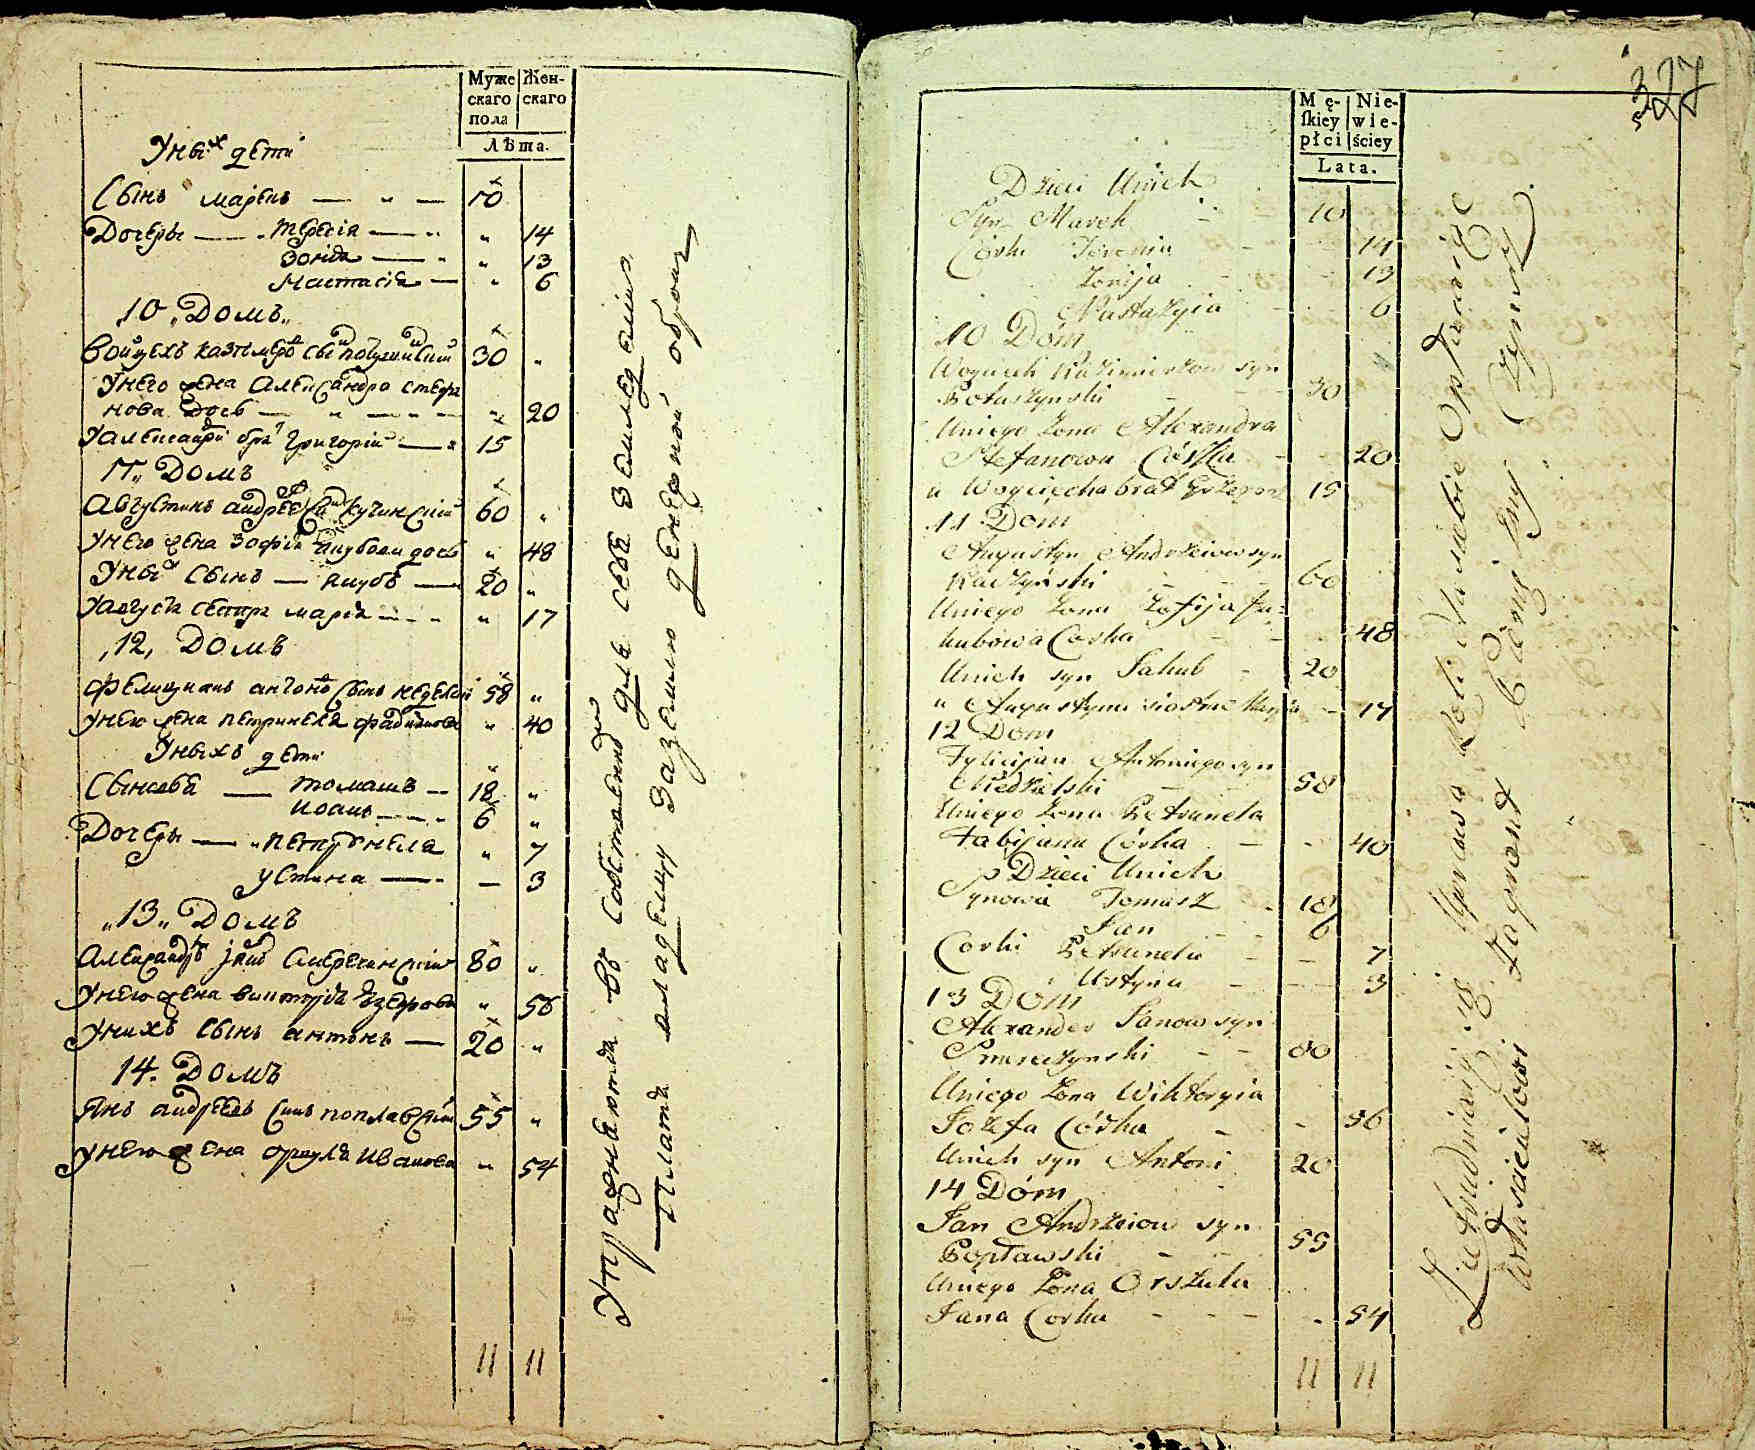 Муже Жен-
скаго скаго
пола
Лѣта.
Уныхъ дети
Сынъ марекъ 10
Дочеры тересія 14
Зоніа 13
Настасіа 6
10 Домъ
Войцехъ казимеровъ сынъ 30
Унего жена Александра стефа
нова дось 20
братъ григорій 15
11 Домъ
Августинъ андреевъ сынъ кучинскій 60
Унего жена Зофія якубова дось 48
Уныхъ сынъ якубъ 20
сестра марія 17
12 Домъ
антоновъ сынъ 58
Унего жена петрунеля фабиянова 40
Уныхъ дети
Сыновья томашъ 18
иоанъ 6
Дочеры петрунеля 7
устина 3
13 Домъ
Александръ яновъ 80
Унего жена викторія иозефова 56
Унихъ сынъ антонъ 20
14. Домъ
Янъ андреевъ сынъ поплавскій 55
Унего жена оршуля иванова 54
11 11
Упражняютца въ собственной для себя земледелии
Платя владельцу за землю денежной оброкъ
327
Mę- Nie-
ſkiey wie-
płci ściey
Lata.
Dzieci Unich
Syn Marek 10
Córki Teresia 14
Zonija 13
Nastazyia 6
10 Dom
Woyciech Kazimierzow syn
Potuszynski 30
Uniego Zona Alexandra
Stefanowa Córka 20
u Woyciecha brat Grzegorz 15
11 Dom
Augustyn Andrzeiow syn
Kuczynski 60
Uniego Zona Zofija Ja-
kubowa Corka 48
Unich syn Jakub 20
u Augustyna siostra Marya 17
12 Dom
Felicijan Antoniego syn
Niedzielski 58
Uniego Zona Petrunela
Fabijana Córka 40
Dzieci Unich
Synowia Tomasz 18
Jan 6
Corki Petrunela 7
Ustyna 3
13 Dom
Alexander Janow syn
Smereczynski 80
Uniego Zona Wiktoryia
Jozefa Córka 56
Unich syn Antoni 20
14 Dom
Jan Andrzeiow syn
Popławski 55
Uniego Zona Orszula
Jana Corka 54
11 11
Zatrudniaią się Uprawą Roli dla siebie Opłacaiąc
Właścicielowi